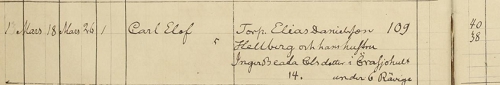 Mars 18 Mars 26 1 Carl Elof Torp. Elias Danielsson 109 40
Hellberg och hans hustru 38
Inger Beata Olsdotter i
14. under 6 Rävige